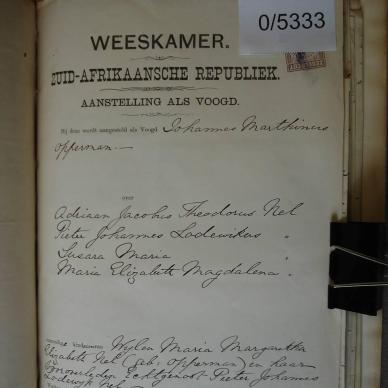 0/5333
WEESKAMER.
ZUID-AFRIKAANSCHE REPUBLIEK.
AANSTELLING ALS VOOGD.
Bij deze wordt aangesteld als Voogd Johannes Marthinus
Opperman
over
Adriaan Jacobus Theodorus Nel
Pieter Johannes Lodewikus "
Susara Maria "
Maria Elizabeth Magdalena "
kinderen Wylen Maria Margaretha
Elizabeth Nel (geb: Opperman) en haar
Echtgenoot Pieter Johannes
Nel